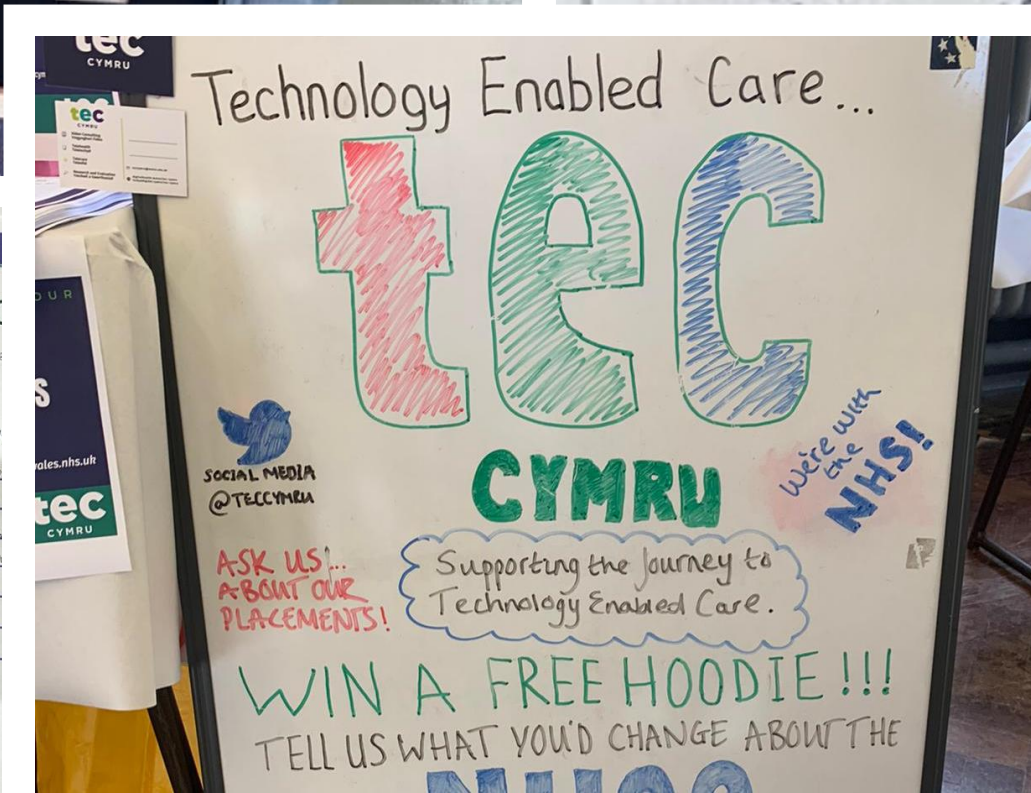 tec
CYMRU
tec
CYMRU
Technology Enabled Care...
tec
CYMRU
SOCIAL MEDIA
@TECCYMRU
We're with
the
NHS!
ASK US!...
ABOUT OUR
PLACEMENTS!
Supporting the Journey to
Technology Enabled Care.
WIN A FREE HOODIE!!!
TELL US WHAT YOU'D CHANGE ABOUT THE
OUR
S
ales.nhs.uk
tec
CYMRU